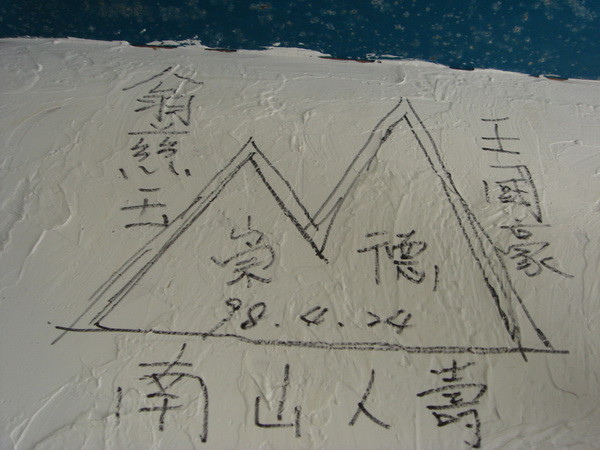 翁慈玉
王國豪
崇德
98.4.24
南山人壽